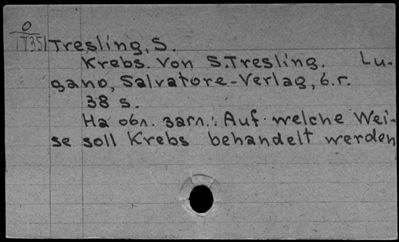 О
1735
Tresling, S.
Krebs. Von S. Tresling. Lu-
gano, Salvatore-Verlag, б.г.
38 s.
На обл. загл.: Auf welche Wei-
se soll Krebs behandelt werden